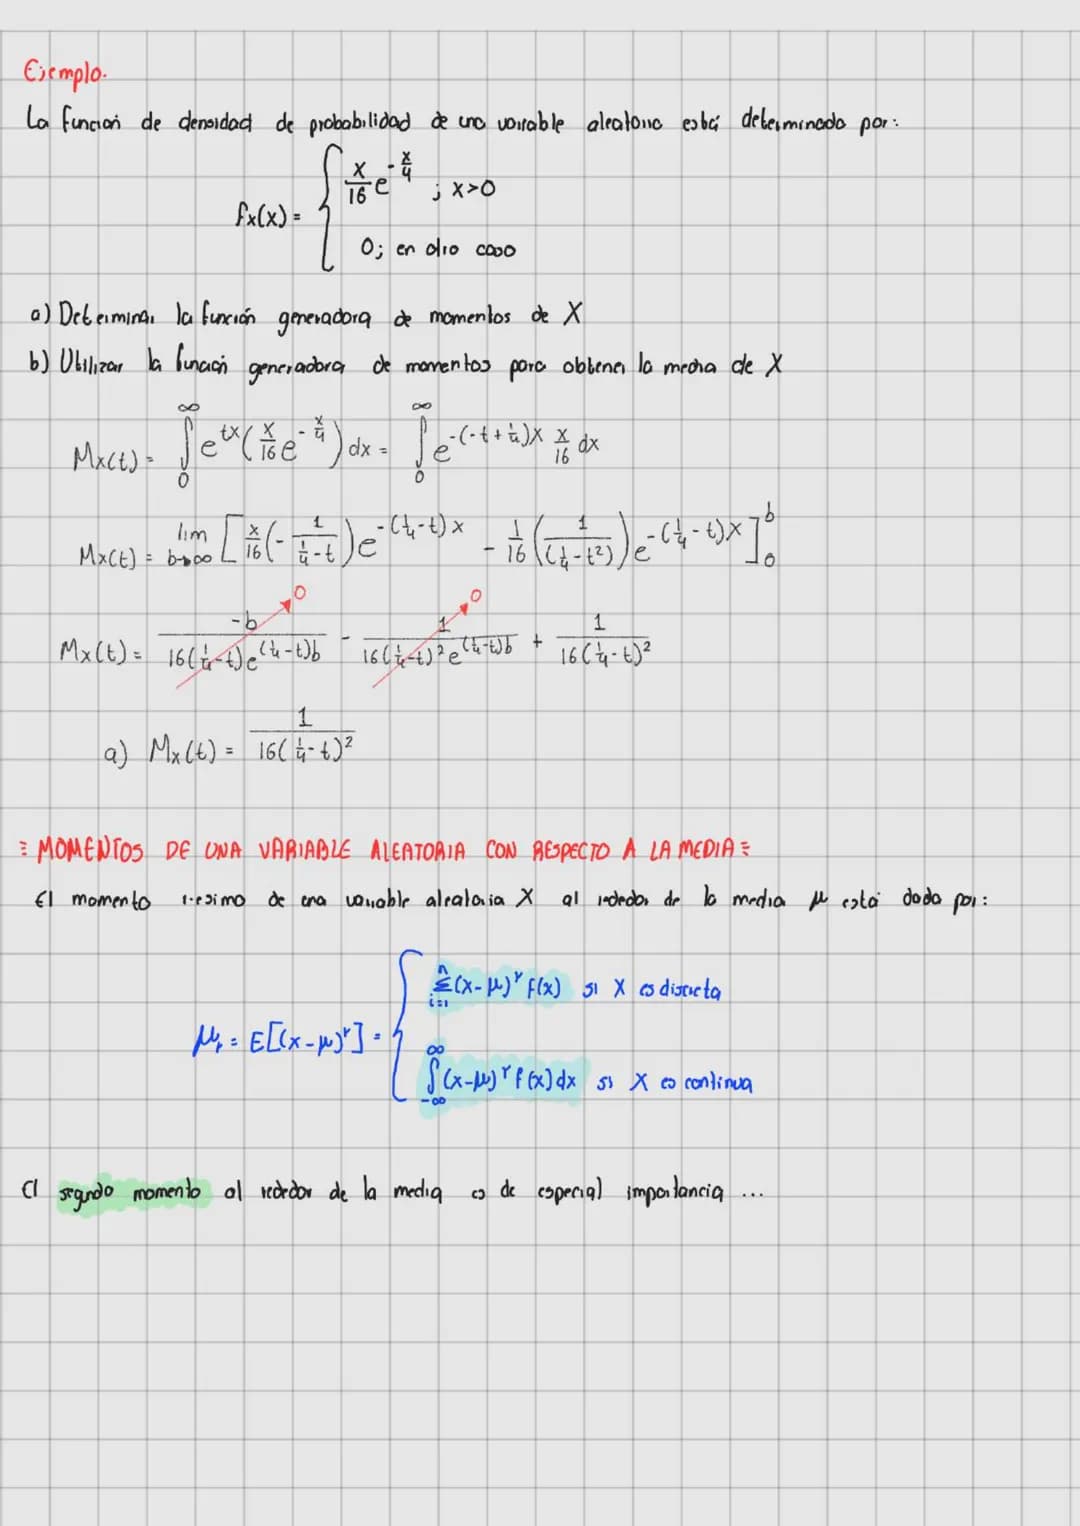 Ejemplo.
La función de densidad de probabilidad de una variable aleatoria está determinada por:
fx(x) = { x/16 e^(-x/4) ; x>0
0; en otro caso
a) Determinar la función generadora de momentos de X
b) Utilizar la función generadora de momentos para obtener la media de X
Mx(t) = ∫₀^∞ e^(tx) (x/16 e^(-x/4)) dx = ∫₀^∞ e^(-(-t+1/4)x) x/16 dx
Mx(t) = lim b→∞ [ x/16 (- 1/(1/4-t)) e^(-(1/4-t)x) - 1/16 (1/((1/4-t²))) e^(-(1/4-t)x) ]₀^b
Mx(t) = -b/(16(1/4-t)e^((1/4-t)b)) → 0 - 1/(16(1/4-t)² e^((1/4-t)b)) → 0 + 1/(16(1/4-t)²)
a) Mx(t) = 1/(16(1/4-t)²)
≡ MOMENTOS DE UNA VARIABLE ALEATORIA CON RESPECTO A LA MEDIA ≡
El momento r-esimo de una variable aleatoria X al rededor de la media μ está dada por:
μr = E[(x-μ)^r] = { Σ_(i=1)^n (x-μ)^r f(x) si X es discreta
∫_(-∞)^∞ (x-μ)^r f(x) dx si X es continua
El segundo momento al rededor de la media es de especial importancia ...